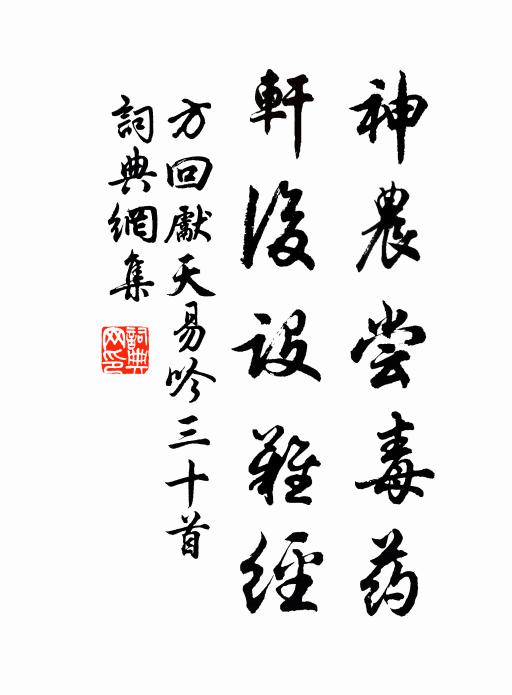 神農尝毒药
軒後設難經
方回獻天易吟三十首
詞典網集
詞典網印